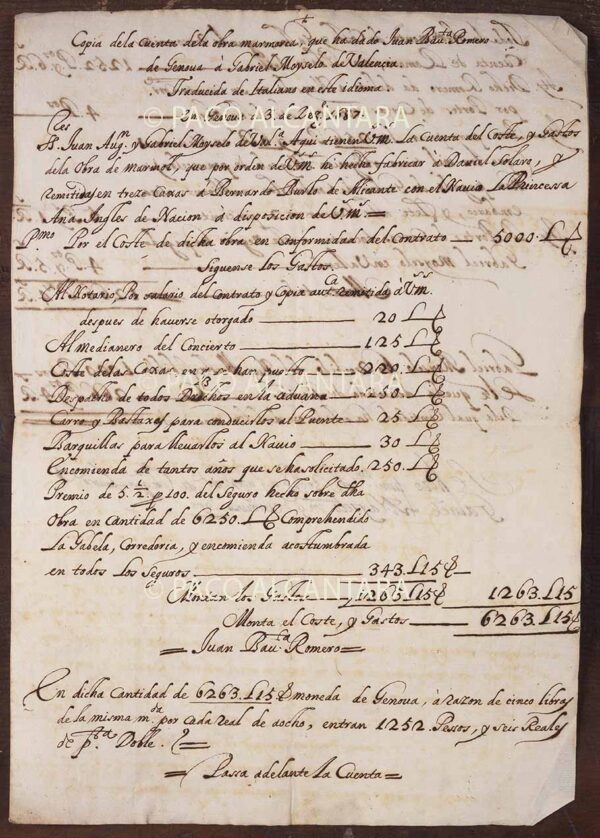 Copia de la Cuenta de la obra marmorea, que ha dado Juan Bau.ta Romero
de Genova á Gabriel Moyselo de Valencia.
Traducida de Italiano en este idioma.
© PACO ALCANTARA
En Genova á 3. de
S.res Juan Aug.n y Gabriel Moyselo de V.a Aqui tienen V.ms La Cuenta del Coste, y Gastos
de la Obra de Marmol, que por orden de V.ms he hecho fabricar a Daniel Solaro, y
remitidas en treze Caxas á Bernardo Burlo de Alicante con el Navio La Princessa
Ana Ingles de Nacion á disposicion de V.ms =
P.mo Por el Coste de dicha obra en Conformidad del Contrato — 5000. L
Siguense los Gastos.
Al Notario, Por salario del Contrato y Copia aut.ca remitida á V.ms
despues de haverse otorgado — 20 L
Al medianero del Concierto — 125 L
Coste de las Caxas en q se han puesto — 220. L
© PACO ALCANTARA
Despacho de todos D.ros en la aduana — 250. L
Carro y Bastaxes para conducirlos al Puente — 25 L
Barquillas para llevarlos al Navio — 30 L
Encomienda de tantos años que se ha solicitado. 250. L
Premio de 5. 1/2 p 100. del Seguro hecho sobre dha
Obra en Cantidad de 6250. L Comprehendido
La Gabela, Corredoria, y encomienda acostumbrada
en todos los Seguros — 343. L15
© PACO ALCANTARA
Montan los Gastos — 1263. L15 1263. L15
Monta el Coste, y Gastos — 6263. L15
= Juan Bau.ta Romero =
En dicha Cantidad de 6263. L15 moneda de Genova, á razon de cinco libras
de la misma m.da por cada real de aocho, entran 1252. Pessos, y seis Reales
de p.ta Doble. =
= Passa adelante la Cuenta =